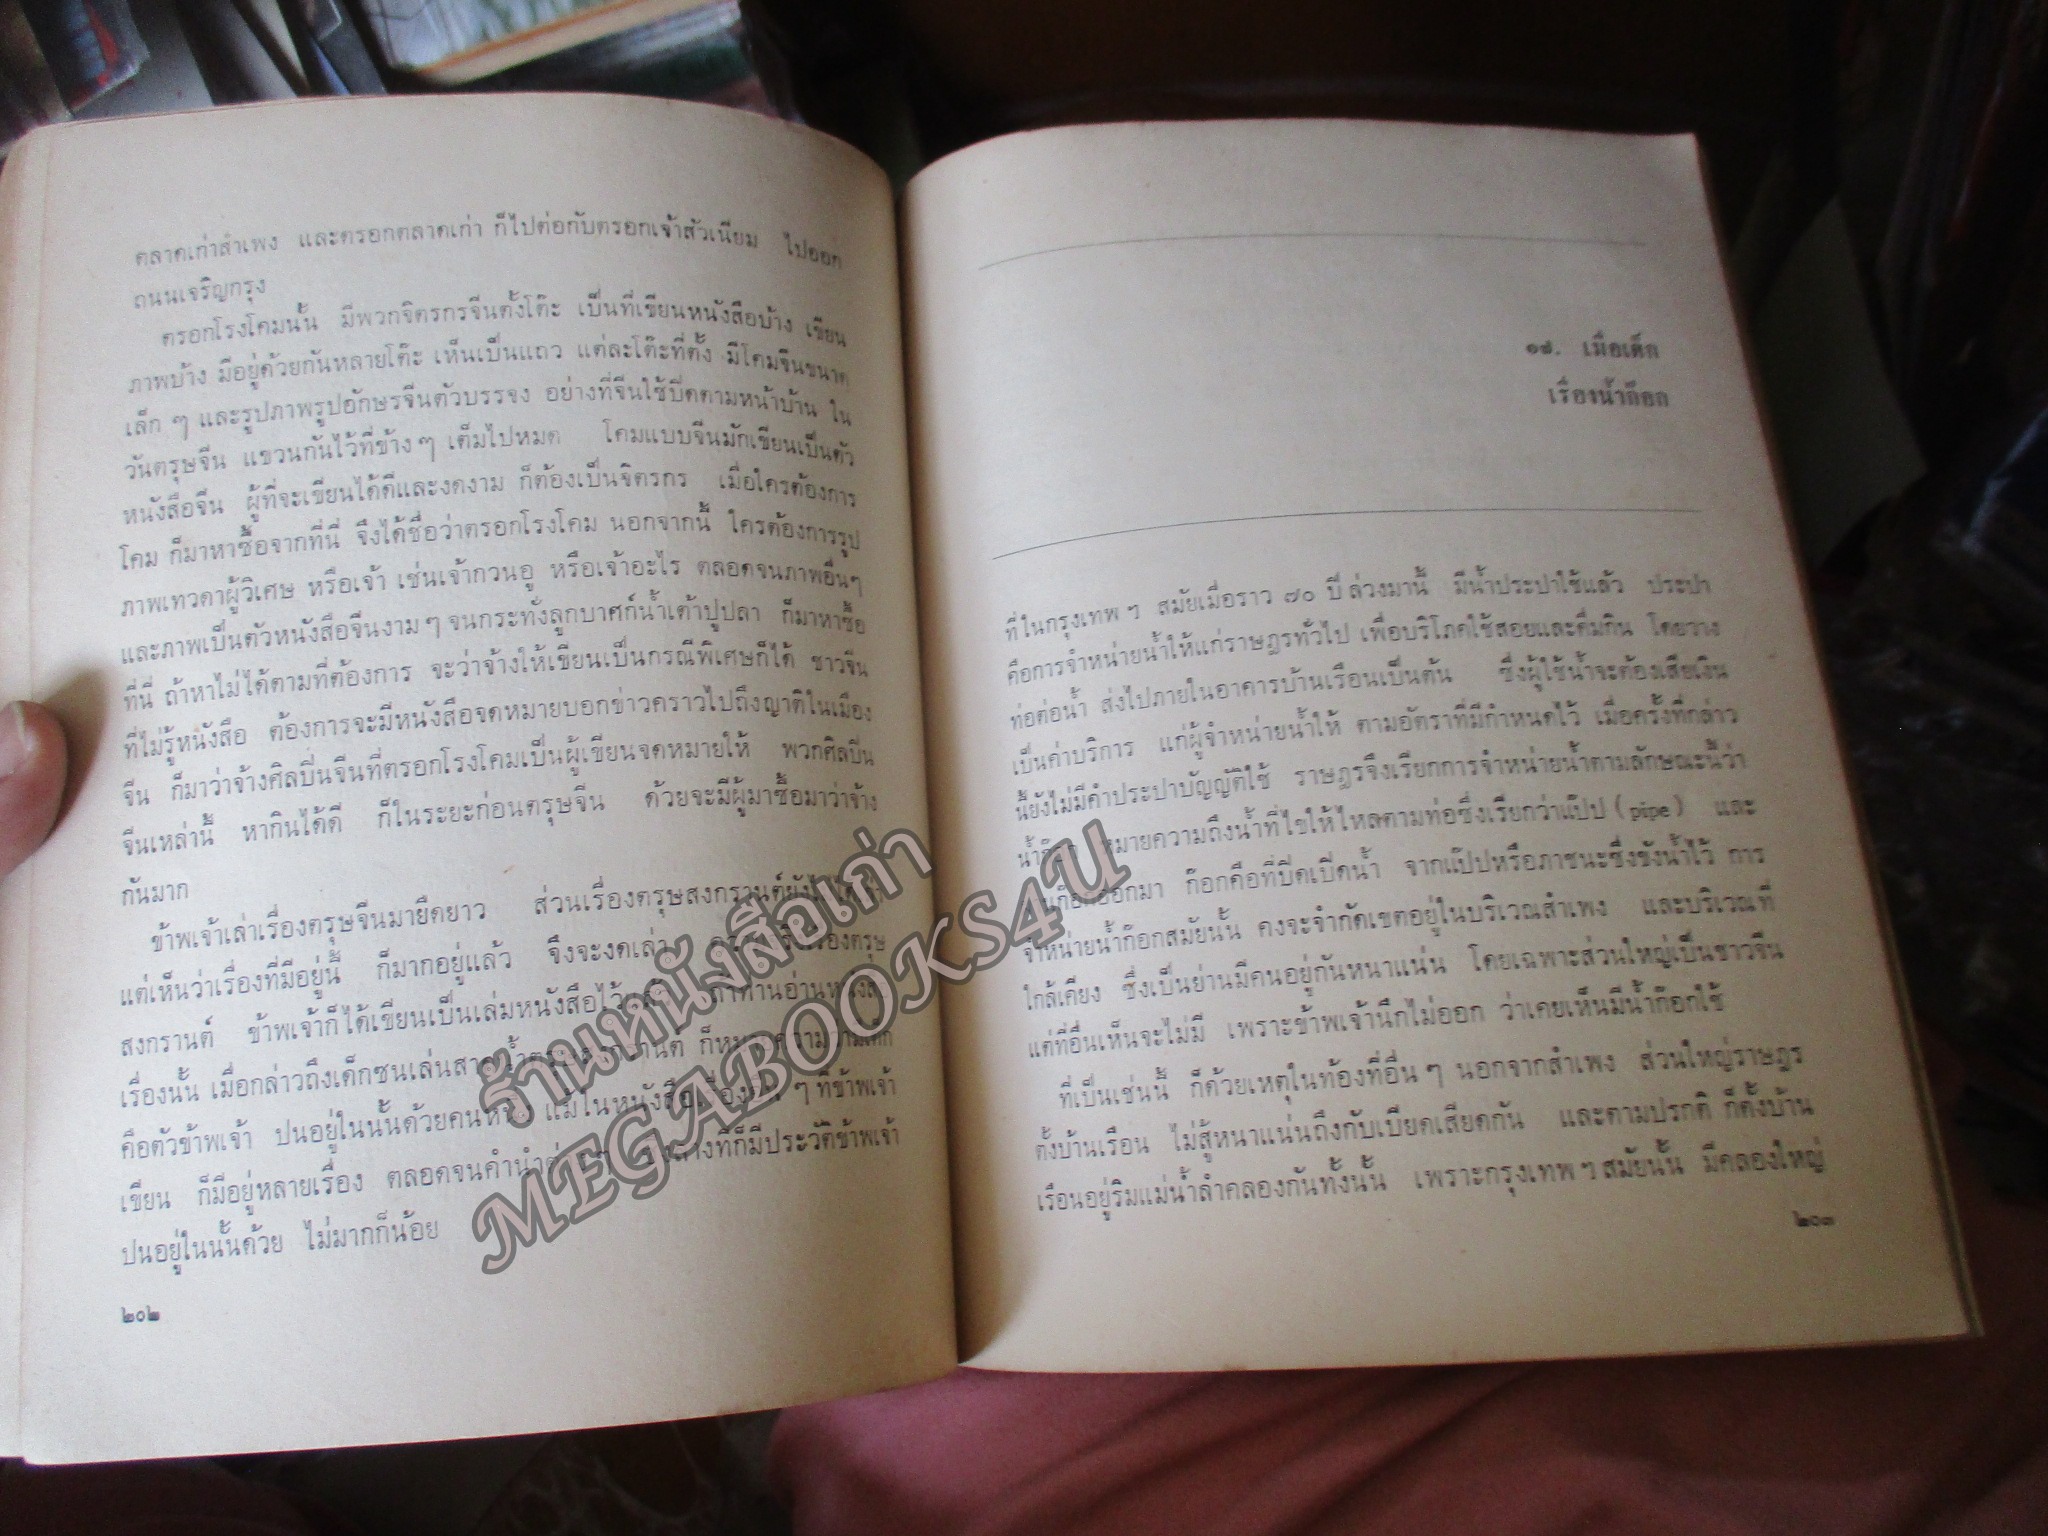 ตลาดเก่าสำเพง และตรอกตลาดเก่า ก็ไปต่อกับตรอกเจ้าสัวเนียม ไปออก
ถนนเจริญกรุง
ตรอกโรงโคมนั้น มีพวกจิตรกรจีนตั้งโต๊ะ เป็นที่เขียนหนังสือบ้าง เขียน
ภาพบ้าง มีอยู่ด้วยกันหลายโต๊ะ เห็นเป็นแถว แต่ละโต๊ะที่ตั้ง มีโคมจีนขนาด
เล็ก ๆ และรูปภาพรูปอักษรจีนตัวบรรจง อย่างที่จีนใช้ปิดตามหน้าบ้าน ใน
วันตรุษจีน แขวนกันไว้ที่ข้าง ๆ เต็มไปหมด โคมแบบจีนมักเขียนเป็นตัว
หนังสือจีน ผู้ที่จะเขียนได้ดีและงดงาม ก็ต้องเป็นจิตรกร เมื่อใครต้องการ
โคม ก็มาหาซื้อจากที่นี่ จึงได้ชื่อว่าตรอกโรงโคม นอกจากนี้ ใครต้องการรูป
ภาพเทวดาผู้วิเศษ หรือเจ้า เช่นเจ้ากวนอู หรือเจ้าอะไร ตลอดจนภาพอื่นๆ
และภาพเป็นตัวหนังสือจีนงามๆ จนกระทั่งลูกบาศก์น้ำเต้าปูปลา ก็มาหาซื้อ
ที่นี่ ถ้าหาไม่ได้ตามที่ต้องการ จะว่าจ้างให้เขียนเป็นกรณีพิเศษก็ได้ ชาวจีน
ที่ไม่รู้หนังสือ ต้องการจะมีหนังสือจดหมายบอกข่าวคราวไปถึงญาติในเมือง
จีน ก็มาว่าจ้างศิลปินจีนที่ตรอกโรงโคมเป็นผู้เขียนจดหมายให้ พวกศิลปิน
จีนเหล่านี้ หากินได้ดี ก็ในระยะก่อนตรุษจีน ด้วยจะมีผู้มาซื้อมาว่าจ้าง
กันมาก
ข้าพเจ้าเล่าเรื่องตรุษจีนมายืดยาว ส่วนเรื่องตรุษสงกรานต์ยังไม่ได้
แต่เห็นว่าเรื่องที่มีอยู่นี้ ก็มากอยู่แล้ว จึงจะงดเล่า เรื่องตรุษ
สงกรานต์ ข้าพเจ้าก็ได้เขียนเป็นเล่มหนังสือไว้ ถ้าท่านอ่านหนังสือ
เรื่องนั้น เมื่อกล่าวถึงเด็กซนเล่นสาดน้ำ ก็หมายความว่าเด็ก
คือตัวข้าพเจ้า ปนอยู่ในนั้นด้วยคนหนึ่ง แม้ในหนังสือเรื่องอื่น ๆ ที่ข้าพเจ้า
เขียน ก็มีอยู่หลายเรื่อง ตลอดจนคำนำ บางที่ก็มีประวัติข้าพเจ้า
ปนอยู่ในนั้นด้วย ไม่มากก็น้อย
๒๐๒
๑๗. เมื่อเด็ก
เรื่องน้ำก๊อก
ที่ในกรุงเทพ ฯ สมัยเมื่อราว ๗๐ ปี ล่วงมานี้ มีน้ำประปาใช้แล้ว ประปา
คือการจำหน่ายน้ำให้แก่ราษฎรทั่วไป เพื่อบริโภคใช้สอยและดื่มกิน โดยวาง
ท่อต่อน้ำ ส่งไปภายในอาคารบ้านเรือนเป็นต้น ซึ่งผู้ใช้น้ำจะต้องเสียเงิน
เป็นค่าบริการ แก่ผู้จำหน่ายน้ำให้ ตามอัตราที่มีกำหนดไว้ เมื่อครั้งที่กล่าว
นี้ยังไม่มีคำประปาบัญญัติใช้ ราษฎรจึงเรียกการจำหน่ายน้ำตามลักษณะนี้ว่า
น้ำก๊อก หมายความถึงน้ำที่ไขให้ไหลตามท่อซึ่งเรียกว่าแป๊ป (pipe) และ
ก๊อกออกมา ก๊อกคือที่ปิดเปิดน้ำ จากแป๊ปหรือภาชนะซึ่งขังน้ำไว้ การ
จำหน่ายน้ำก๊อกสมัยนั้น คงจะจำกัดเขตอยู่ในบริเวณสำเพง และบริเวณที่
ใกล้เคียง ซึ่งเป็นย่านมีคนอยู่กันหนาแน่น โดยเฉพาะส่วนใหญ่เป็นชาวจีน
แต่ที่อื่นเห็นจะไม่มี เพราะข้าพเจ้านึกไม่ออก ว่าเคยเห็นมีน้ำก๊อกใช้
ที่เป็นเช่นนี้ ก็ด้วยเหตุในท้องที่อื่น ๆ นอกจากสำเพง ส่วนใหญ่ราษฎร
ตั้งบ้านเรือน ไม่สู้หนาแน่นถึงกับเบียดเสียดกัน และตามปรกติ ก็ตั้งบ้าน
เรือนอยู่ริมแม่น้ำลำคลองกันทั้งนั้น เพราะกรุงเทพ ฯ สมัยนั้น มีคลองใหญ่
๒๐๓
ร้านหนังสือเก่า
MEGABOOKS4U